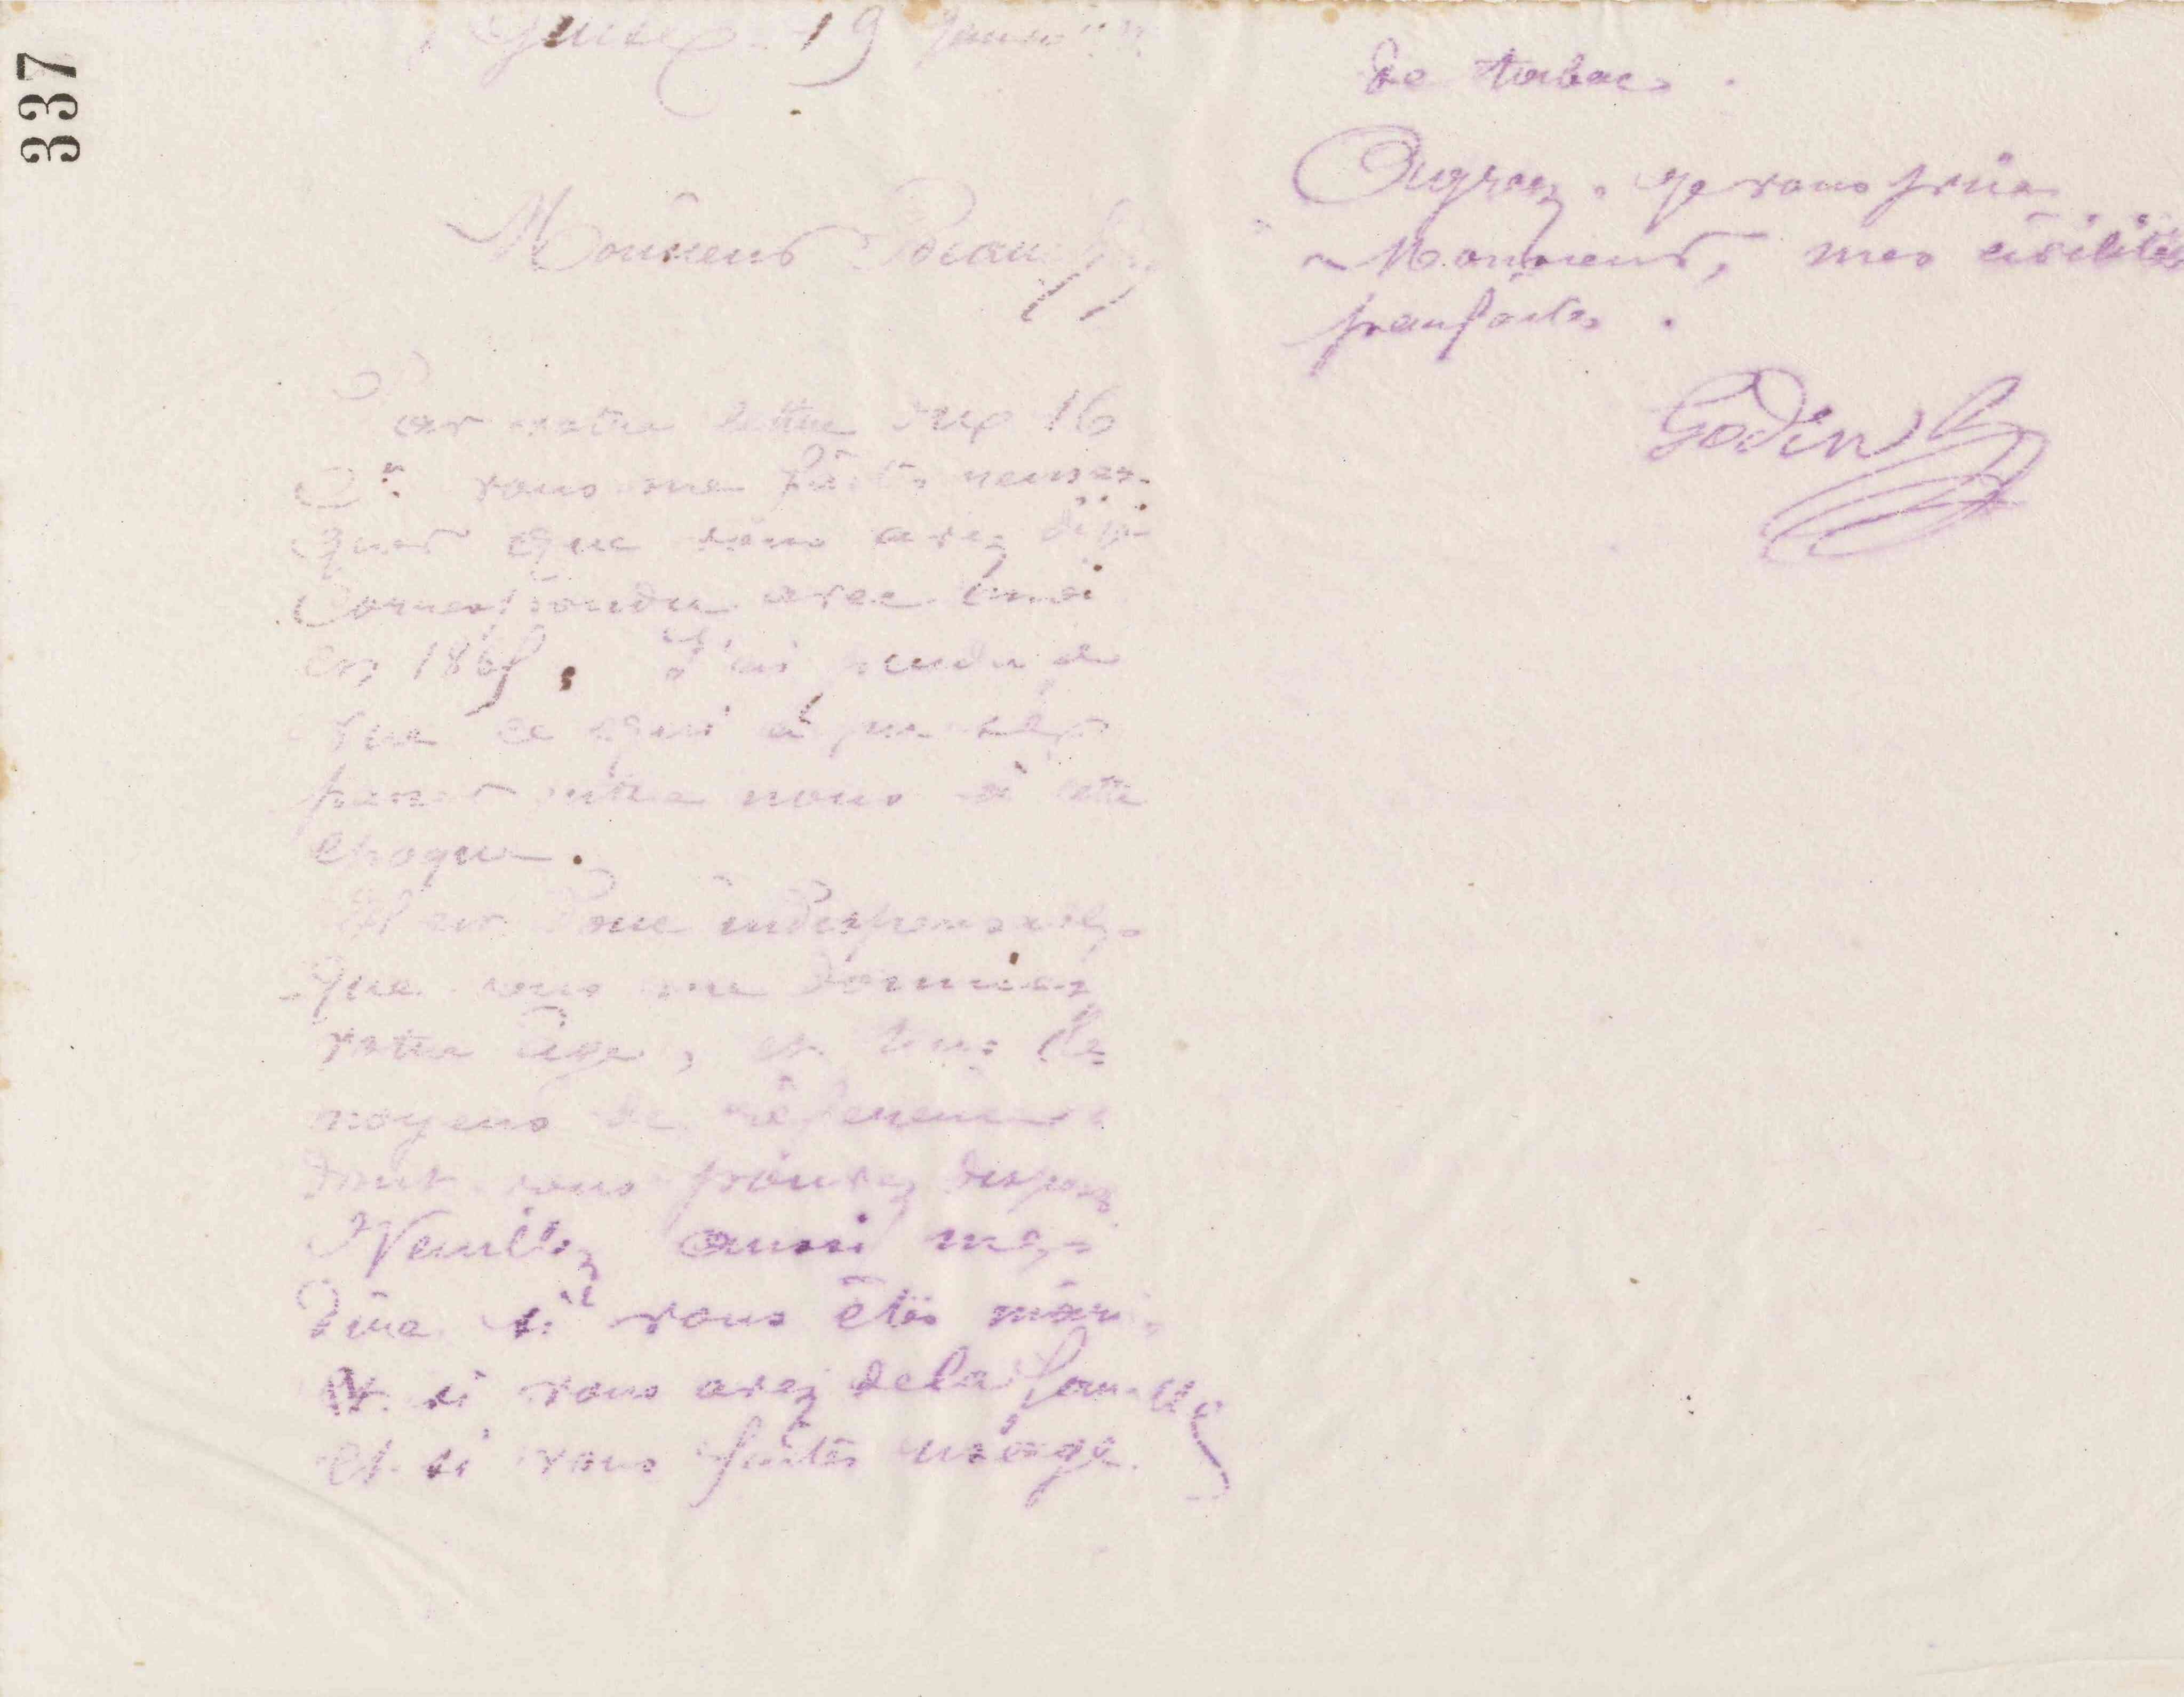 337
Guise 19 Janvier
Monsieur
Par votre lettre du 16
Ct vous me faites remar-
quer que vous avez déjà
correspondu avec moi
en 186 . J'ai perdu de
vue ce qui a pu se
passer entre nous à cette
époque.
Il est donc indispensable
que vous me donniez
votre âge, et tous les
moyens de référence
dont vous pouvez disposer
Veuillez aussi me
dire si vous êtes marié
et si vous avez de la famille
et si vous faites usage
de tabac.
Agréez, je vous prie
Monsieur, mes civilités
parfaites.
Godin